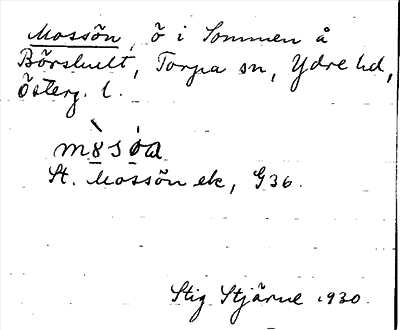 Mossön, ö i Sommen å
Börshult, Torpa sn, Ydre hd,
Österg. l.
St. Mossön ek, G36.
Stig Stjärne 1930.